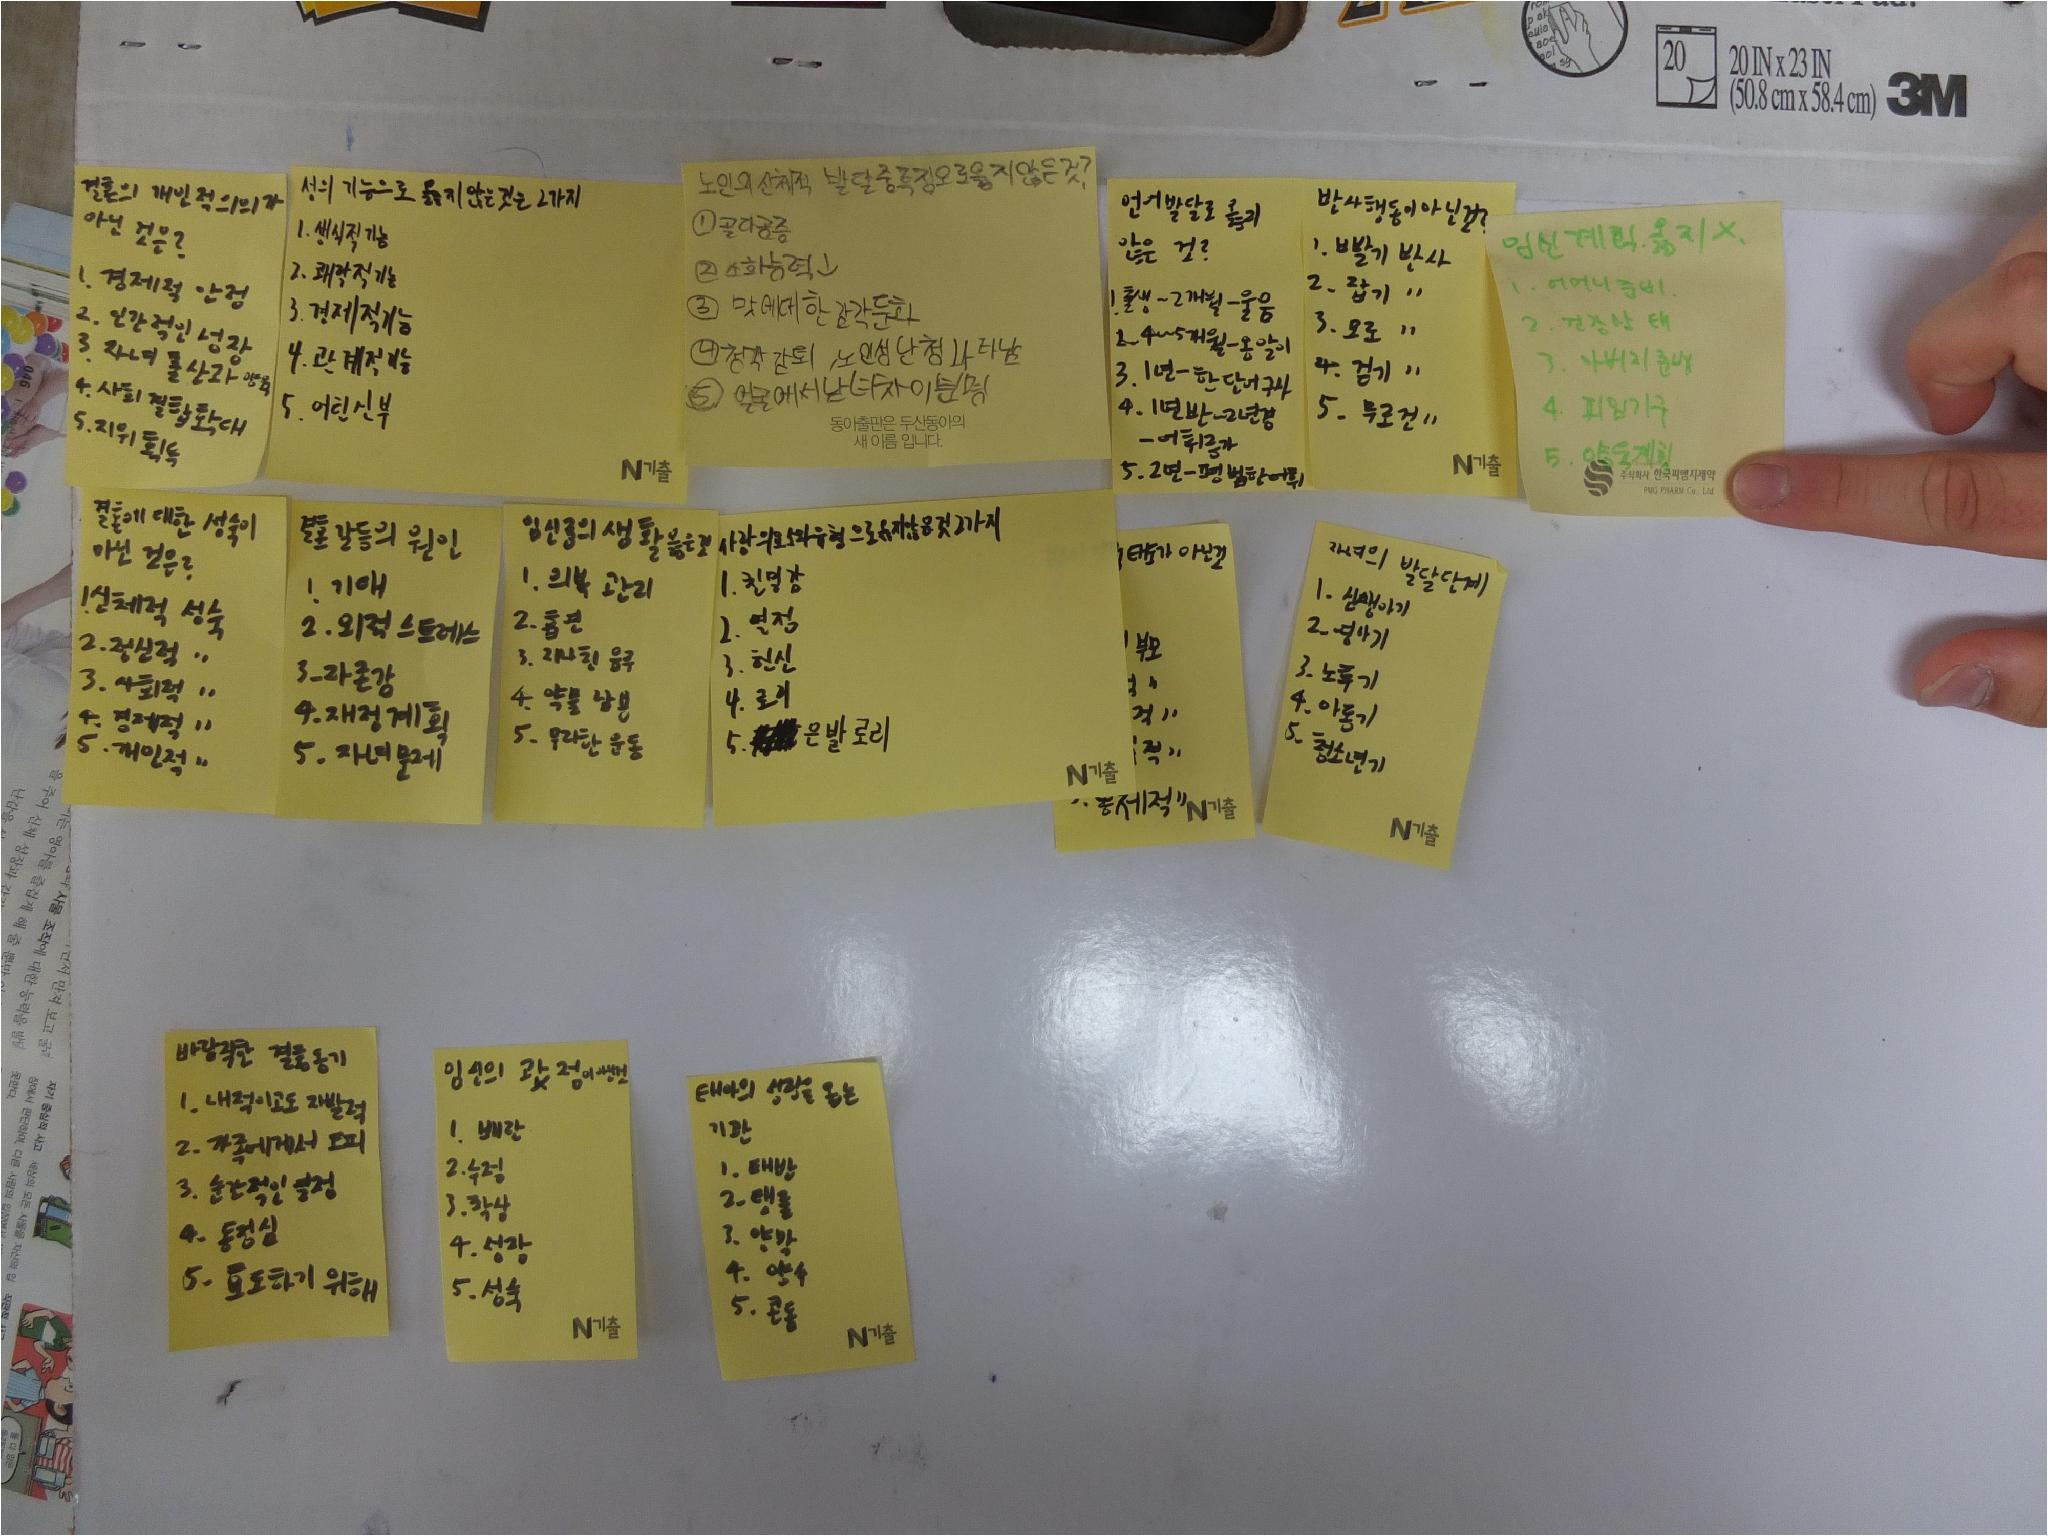 20
20 IN x 23 IN
(50.8 cm x 58.4 cm)
3M
결혼의 개인적 의의가
아닌 것은?
1. 경제적 안정
2. 인간적인 성장
3. 자녀 출산과 양육
4. 사회 결합 확대
5. 지위 획득
성의 기능으로 옳지 않는 것은 2가지
1. 생식적 기능
2. 쾌락적 기능
3. 경제적 기능
4. 관계적 기능
5. 어린신부
N기출
노인의 신체적 발달 중 특징으로 옳지 않은 것?
① 골다공증
② 소화능력↓
③ 맛에 대한 감각 둔화
④ 청각 감퇴, 노인성 난청 나타남
⑤ 얼굴에서 남녀차이 분명
동아출판은 두산동아의
새 이름 입니다.
언어발달로 옳지
않은 것?
1. 출생~2개월-울음
2. 4~5개월-옹알이
3. 1년-한 단어 구사
4. 1년반~2년경
-어휘증가
5. 2년-평범한 어휘
반사행동이 아닌 것?
1. 빨기 반사
2. 잡기 〃
3. 모로 〃
4. 걷기 〃
5. 무로건 〃
N기출
임신계획 옳지 X.
1. 어머니 준비.
2. 건강상태
3. 아버지 준비
4. 피임기구
5. 양육계획
주식회사 한국피엠지제약
PMG PHARM Co., Ltd
결혼에 대한 성숙이
아닌 것은?
1. 신체적 성숙
2. 정신적 〃
3. 사회적 〃
4. 경제적 〃
5. 개인적 〃
결혼 갈등의 원인
1. 기대
2. 외적 스트레스
3. 자존감
4. 재정계획
5. 자녀문제
임신중의 생활 옳은 것
1. 의복 관리
2. 흡연
3. 지나친 음주
4. 약물 남용
5. 무리한 운동
사랑의 요소와 유형으로 옳지 않은 것 2가지
1. 친밀감
2. 열정
3. 헌신
4. 로리
5. 은발 로리
N기출
태도가 아닌 것
부모
적 〃
적 〃
적 〃
통제적 〃
N기출
자녀의 발달단계
1. 신생아기
2. 영아기
3. 노후기
4. 아동기
5. 청소년기
N기출
바람직한 결혼동기
1. 내적이고도 자발적
2. 가족에게서 도피
3. 순간적인 열정
4. 동정심
5. 효도하기 위해
임신의 과정이 아닌것
1. 배란
2. 수정
3. 착상
4. 성장
5. 성숙
N기출
태아의 성장을 돕는
기관
1. 태반
2. 탯줄
3. 양막
4. 양수
5. 콘돔
N기출